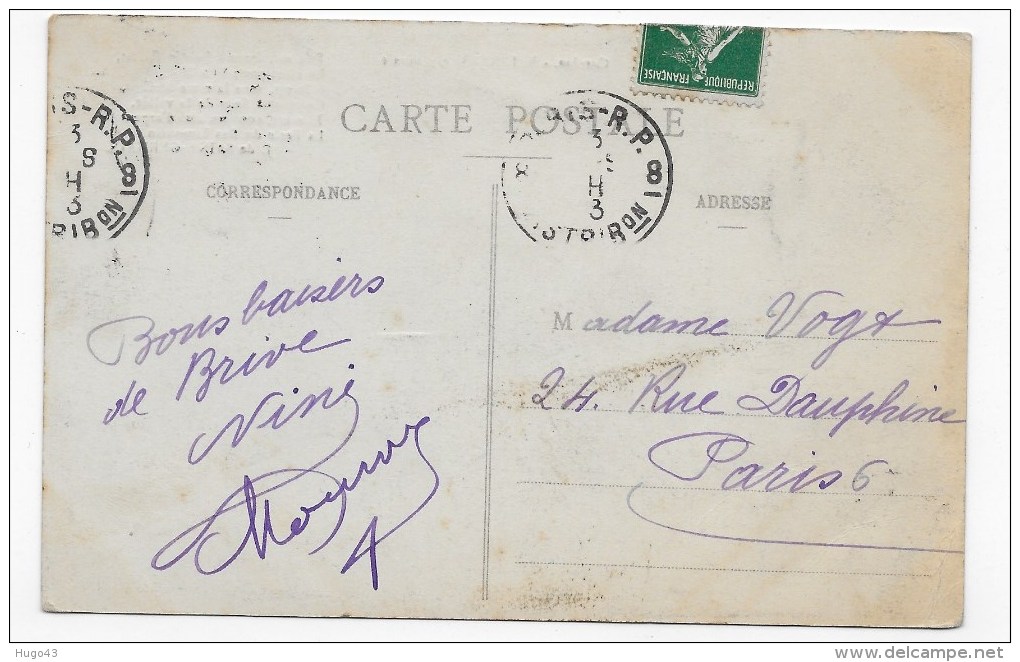 REPUBLIQUE FRANÇAISE
CARTE POSTALE
IS-R.P. 8
3
H
3
IS-R.P. 8
3
H
3
CORRESPONDANCE
ADRESSE
Bons baisers
de Brive
Nini
Madame Vogt
24. Rue Dauphine
Paris 6
Hugo43
www.delcampe.net